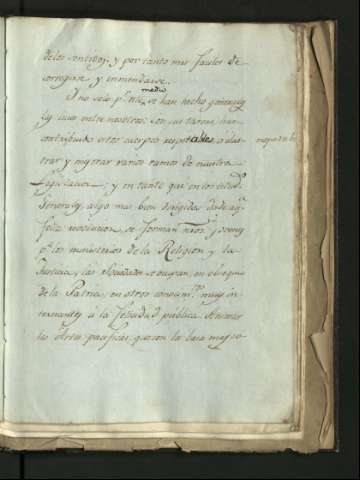 de los sentidos, y por tanto mas faciles de
corregirse y enmendarse.
Y no solo pr. este medio se han hecho generales
las luces entre nosotros: con sus tareas han
contribuido estos cuerpos respetables a ilus-
trar y mejorar varios ramos de nuestra
Legislacion; y en tanto que en los estuds.
Generales, algo mas bien dirigidos desde aqa.
feliz revolucion, se forman
pa. los ministerios de la Religion y la
Justicia, las Sociedades se ocupan, en obsequio
de la Patria, en otros conocimtos. muy in-
teresantes á la felicidad publica. Animar
las Artes pacificas, que son la basa mas so-